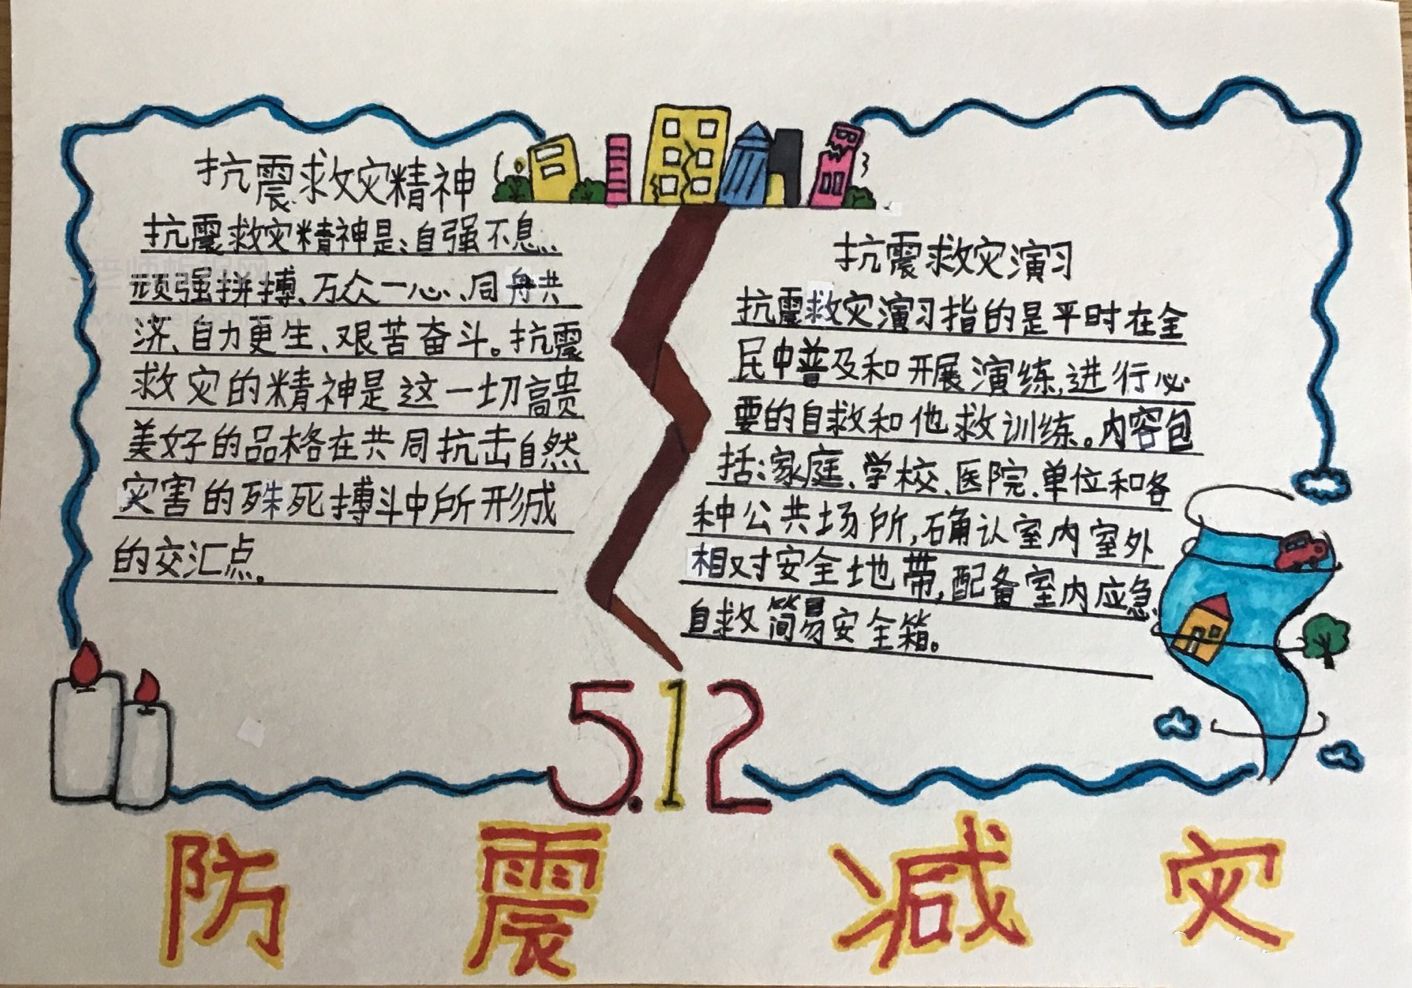 抗震救灾精神
抗震救灾精神是:自强不息、
顽强拼搏、万众一心、同舟共
济、自力更生、艰苦奋斗。抗震
救灾的精神是这一切高贵
美好的品格在共同抗击自然
灾害的殊死搏斗中所形成
的交汇点。
抗震救灾演习
抗震救灾演习指的是平时在全
民中普及和开展演练,进行必
要的自救和他救训练。内容包
括:家庭、学校、医院、单位和各
种公共场所,确认室内室外
相对安全地带,配备室内应急、
自救简易安全箱。
5.12
防震减灾